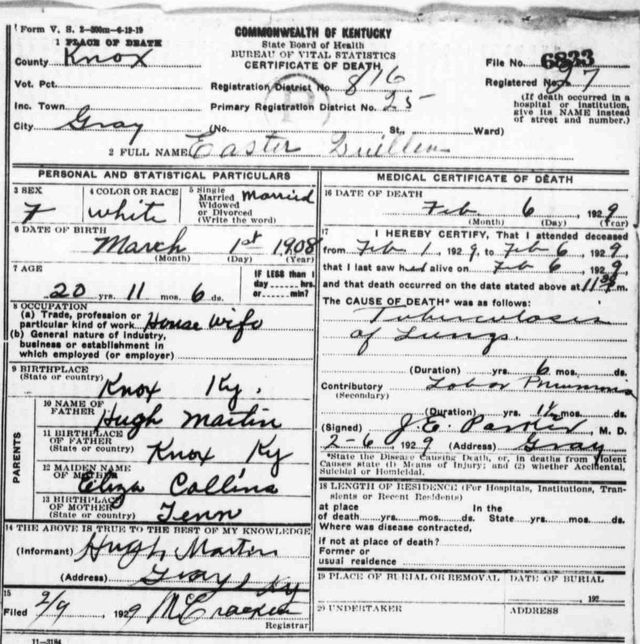 Form V. S. 2-500m-6-19-19
COMMONWEALTH OF KENTUCKY
State Board of Health
BUREAU OF VITAL STATISTICS
CERTIFICATE OF DEATH
1 PLACE OF DEATH
County Knox
File No. 6833
Vot. Pct.
Registration District No. 876
Registered No. 27
Inc. Town
Primary Registration District No. 25
(If death occurred in a hospital or institution, give its NAME instead of street and number.)
City Gray (No. St., Ward)
2 FULL NAME Easter
PERSONAL AND STATISTICAL PARTICULARS
3 SEX F
4 COLOR OR RACE white
5 Single Married Widowed or Divorced (Write the word) Married
6 DATE OF BIRTH
March 1st 1908
(Month) (Day) (Year)
7 AGE
20 yrs. 11 mos. 6 ds.
IF LESS than 1 day hrs. or min.?
8 OCCUPATION
(a) Trade, profession or particular kind of work House wife
(b) General nature of industry, business or establishment in which employed (or employer)
9 BIRTHPLACE
(State or country) Knox Ky.
PARENTS
10 NAME OF FATHER Hugh Martin
11 BIRTHPLACE OF FATHER
(State or country) Knox Ky
12 MAIDEN NAME OF MOTHER Eliza Collins
13 BIRTHPLACE OF MOTHER
(State or country) Tenn
14 THE ABOVE IS TRUE TO THE BEST OF MY KNOWLEDGE
(Informant) Hugh Martin
(Address) Gray, Ky
15
Filed 2/9 1929 McCracken
Registrar
11-3184
MEDICAL CERTIFICATE OF DEATH
16 DATE OF DEATH
Feb 6, 1929
(Month) (Day) (Year)
17 I HEREBY CERTIFY, That I attended deceased
from Feb 1, 1929, to Feb 6, 1929
that I last saw h alive on Feb 6, 1929
and that death occurred on the date stated above at m.
The CAUSE OF DEATH* was as follows:
Tuberculosis
of Lungs.
(Duration) yrs. 6 mos. ds.
Contributory Lobar Pneumonia
(Secondary)
(Duration) yrs. mos. ds.
(Signed) J.E. Parker, M. D.
2-6, 1929 (Address) Gray
*State the Disease Causing Death, or, in deaths from Violent
Causes state (1) Means of Injury; and (2) whether Accidental,
Suicidal or Homicidal.
18 LENGTH OF RESIDENCE (For Hospitals, Institutions, Transients or Recent Residents)
At place of death yrs. mos. ds. In the State yrs. mos. ds.
Where was disease contracted,
if not at place of death?
Former or
usual residence
19 PLACE OF BURIAL OR REMOVAL
DATE OF BURIAL
192
20 UNDERTAKER
ADDRESS